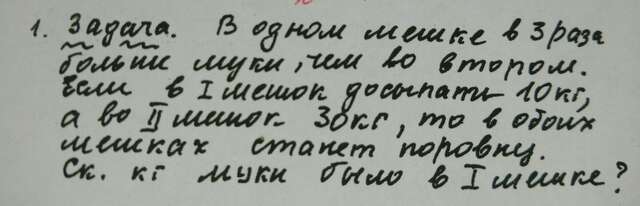 1. Задача. В одном мешке в 3 раза
больше муки, чем во втором.
Если в I мешок досыпать 10 кг,
а во II мешок 30 кг, то в обоих
мешках станет поровну.
Ск. кг муки было в I мешке?